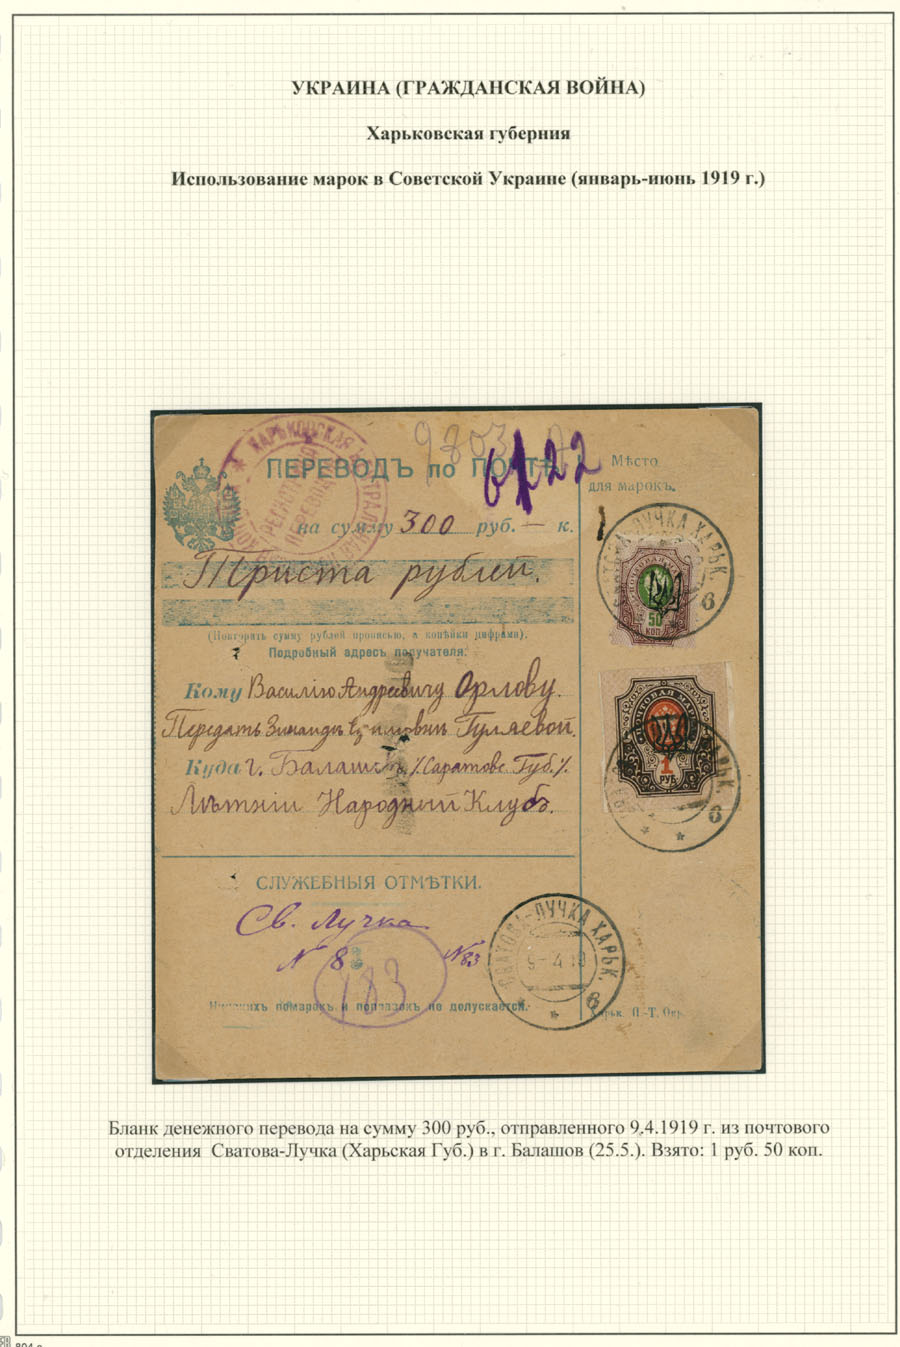 УКРАИНА (ГРАЖДАНСКАЯ ВОЙНА)
Харьковская губерния
Использование марок в Советской Украине (январь-июнь 1919 г.)
ХАРЬКОВСКАЯ
ПЕРЕВОДЪ по ПОЧТѢ
6122
на сумму 300 руб. — к.
Триста рублей.
(Повторить сумму рублей прописью, а копѣйки цифрами).
Подробный адресъ получателя:
Кому Василію Андреевичу Орлову.
Передать Гуляевой
Куда г. Балашовъ /Саратовс. Губ./
Лѣтній Народный Клубъ.
Мѣсто
для марокъ.
ЛУЧКА ХАРЬК.
6
ПОЧТОВАЯ МАРКА
50
КОП
ПОЧТОВАЯ МАРКА
1
РУБ
ХАРЬК.
6
СЛУЖЕБНЫЯ ОТМѢТКИ.
Св. Лучка
N 8
183
№83
СВАТОВА-ЛУЧКА ХАРЬК.
9-4 19
6
Никакихъ помарокъ и поправокъ не допускается.
Харьк. П.-Т. Окр.
Бланк денежного перевода на сумму 300 руб., отправленного 9.4.1919 г. из почтового
отделения Сватова-Лучка (Харьская Губ.) в г. Балашов (25.5.). Взято: 1 руб. 50 коп.